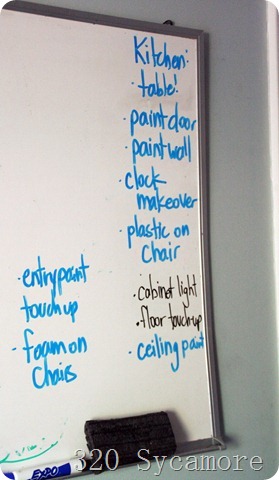 Kitchen:
· table!
· paint door
· paint wall
· clock
makeover
· plastic on
chair
· cabinet light
· floor touch-up
· ceiling paint
· entry paint
touch up
· foam on
chairs
EXPO
320 Sycamore